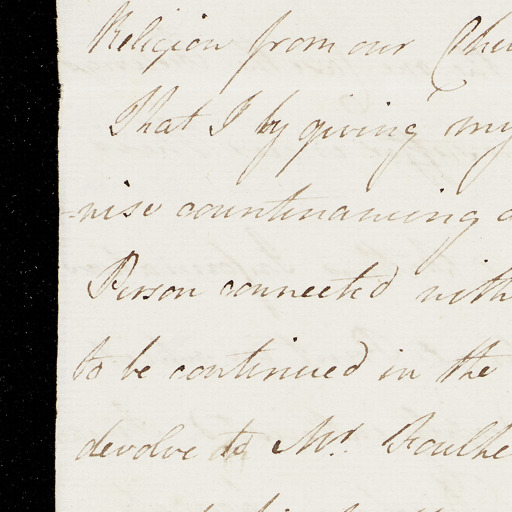 Religion from our
That I by giving my
-nise countenancing
Person connected with
to be continued in the
devolve to Mr.